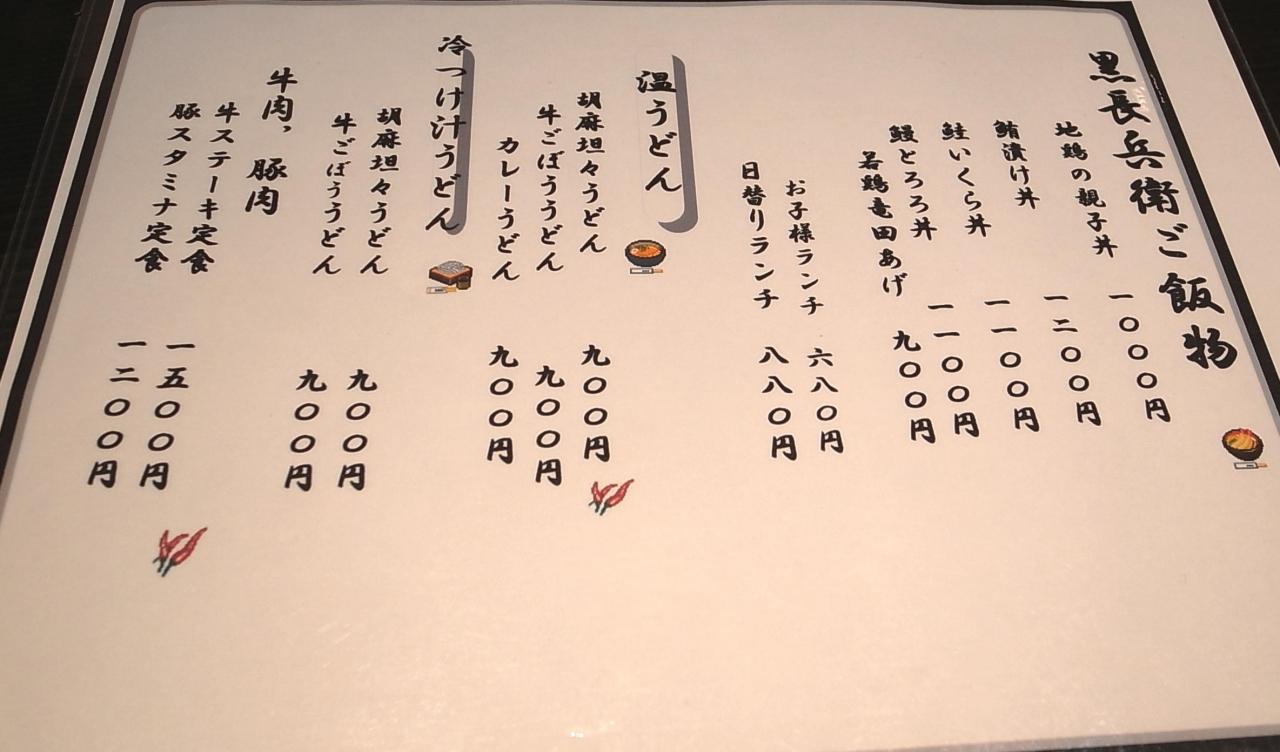 黒長兵衛ご飯物
地鶏の親子丼 一〇〇〇円
鮪漬け丼 一二〇〇円
鮭いくら丼 一一〇〇円
鰻とろろ丼 一一〇〇円
若鶏竜田あげ 九〇〇円
お子様ランチ 六八〇円
日替りランチ 八八〇円
温うどん
胡麻坦々うどん 九〇〇円
牛ごぼううどん 九〇〇円
カレーうどん 九〇〇円
冷つけ汁うどん
胡麻坦々うどん 九〇〇円
牛ごぼううどん 九〇〇円
牛肉、豚肉
牛ステーキ定食 一五〇〇円
豚スタミナ定食 一二〇〇円